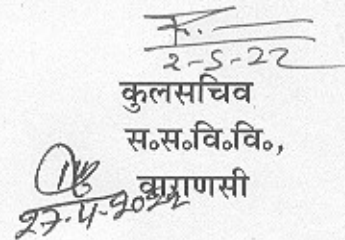 2-5-22
कुलसचिव
स॰स॰वि॰वि॰,
वाराणसी
27-4-2022